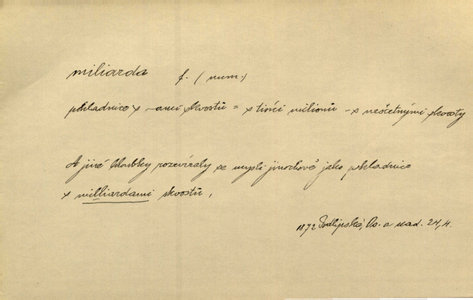 miliarda f. (num)
pokladnice s -ami skvostů = s tisíci milionů - s nesčetnými skvosty
A jiné hlubky rozevíraly se mysli jinochově jako pokladnice
s milliardami skvostů,
1872 Podlipská, Os. a nad. 24, 4.